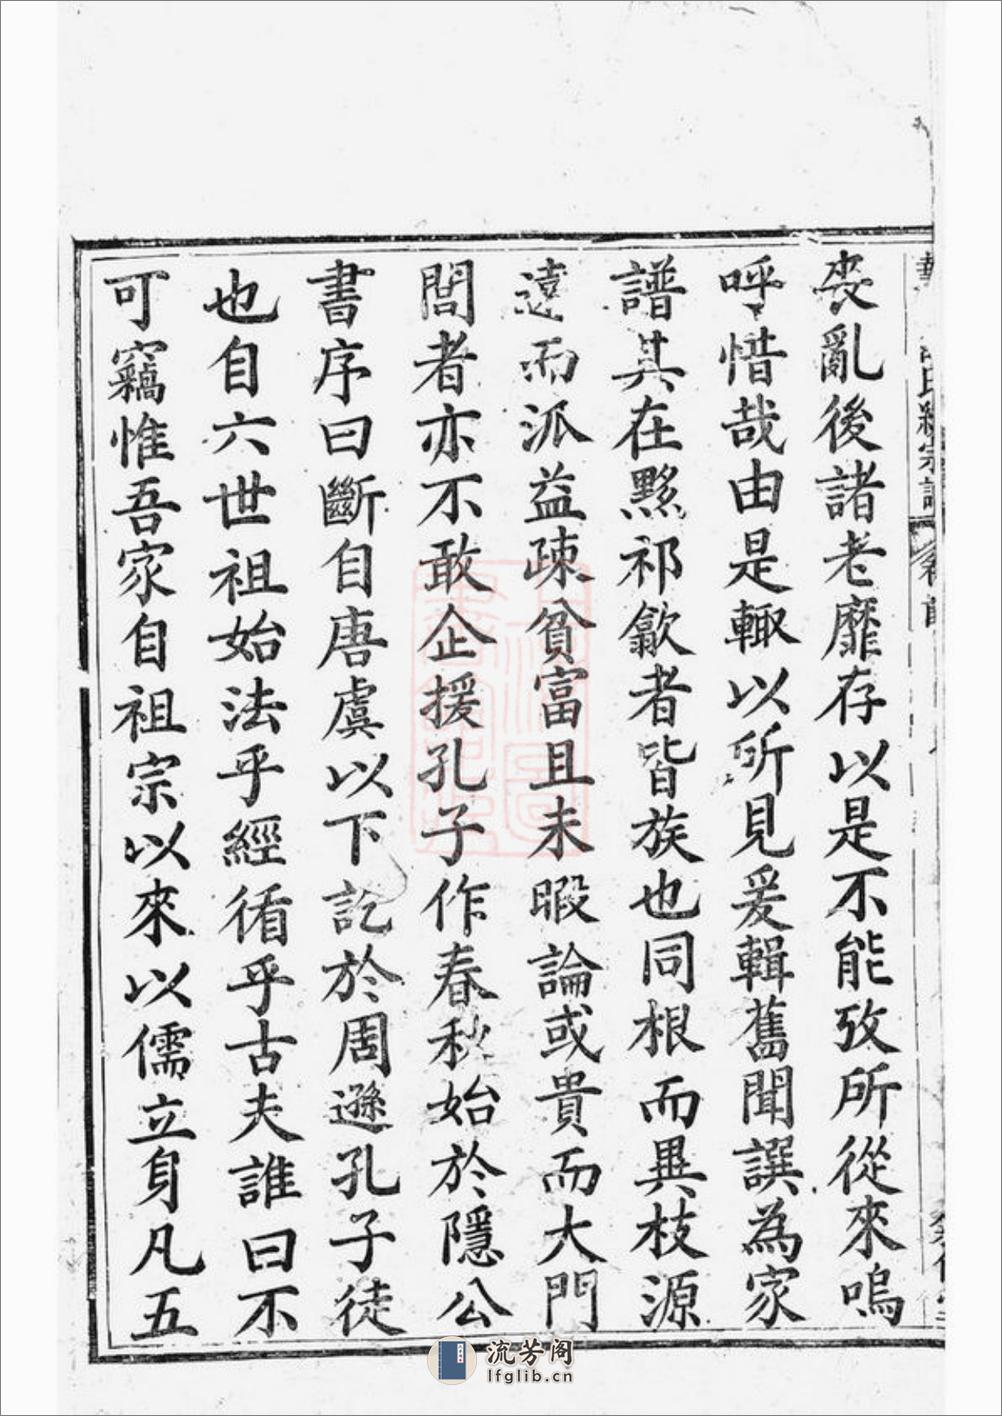 喪亂後諸老靡存以是不能攷所從來嗚
呼惜哉由是輙以所見爰輯舊聞譔為家
譜其在黟祁歙者皆族也同根而異枝源
遠而派益疎貧富且未暇論或貴而大門
閭者亦不敢企援孔子作春秋始於隱公
書序曰斷自唐虞以下訖於周遜孔子徒
也自六世祖始法乎經循乎古夫誰曰不
可竊惟吾家自祖宗以來以儒立身凡五
流芳阁
lfglib.cn